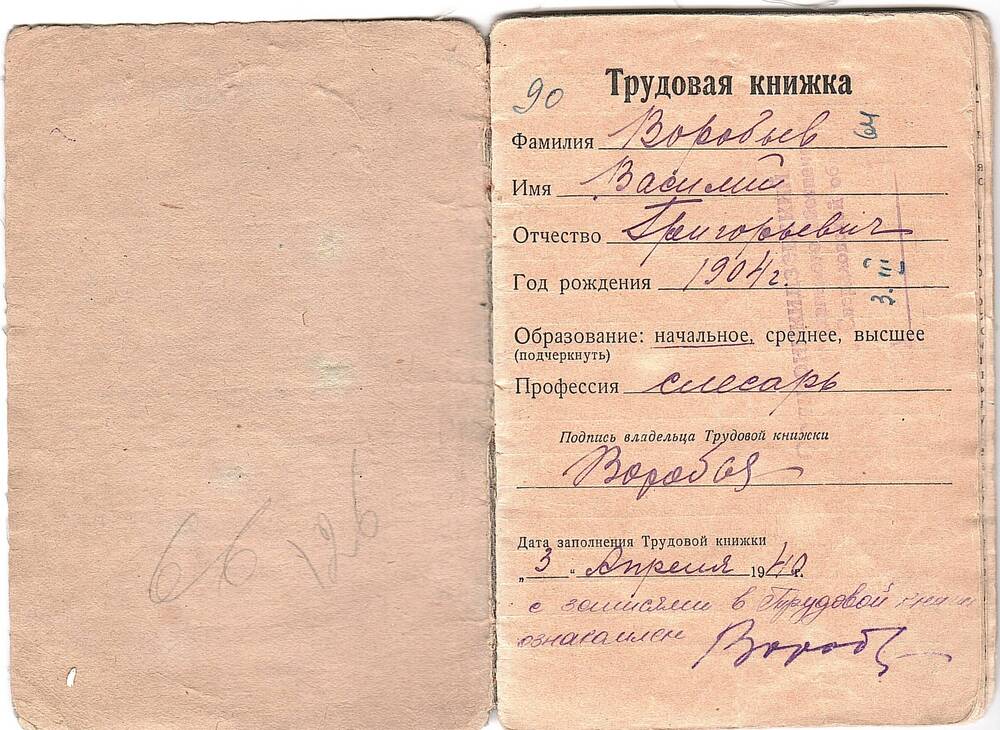 66 126
90
Трудовая книжка
Фамилия Воробьев
64
Имя Василий
Отчество Григорьевич
Год рождения 1904 г.
3.III
Образование: начальное, среднее, высшее
(подчеркнуть)
Профессия слесарь
Подпись владельца Трудовой книжки
Воробьв
Дата заполнения Трудовой книжки
„3“ Апреля 1940 г.
с записями в Трудовой
ознакомлен Вороб